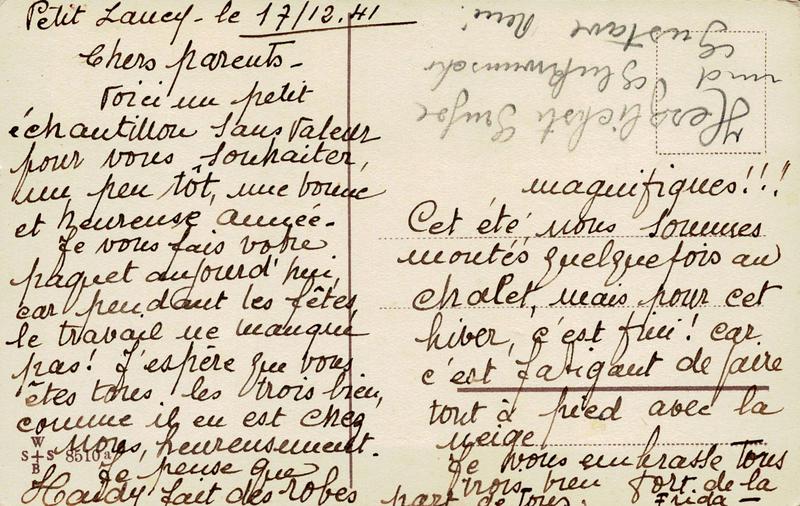 Petit Lancy - le 17/12.41
Chers parents -
Voici un petit
échantillon sans valeur
pour vous souhaiter,
un peu tôt, une bonne
et heureuse année.
Je vous fais votre
paquet aujourd'hui,
car pendant les fêtes
le travail ne manque
pas! J'espère que vous
êtes tous les trois bien,
comme il en est chez
nous, heureusement.
Je pense que
Haidy fait des robes
magnifiques!!!
Cet été, nous sommes
montés quelquefois au
chalet, mais pour cet
hiver, c'est fini! car
c'est fatigant de faire
tout à pied avec la
neige
Je vous embrasse tous
trois bien fort de la
part de tous. Frida -
Herzlichste Grüsse
und Glückwünsche
Gustave René!
W
S+S 8510
B